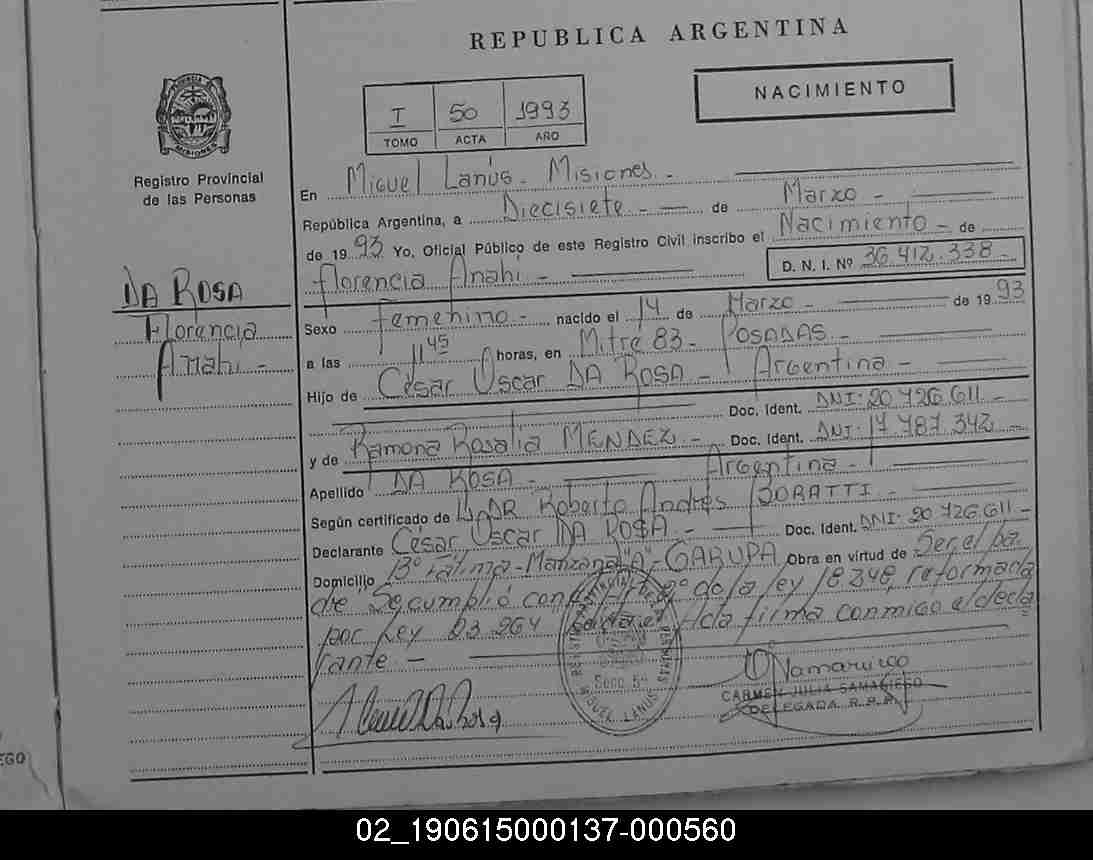 REPUBLICA ARGENTINA
PROVINCIA DE
MISIONES
Registro Provincial
de las Personas
I 50 1993
TOMO ACTA AÑO
NACIMIENTO
DA ROSA
Florencia
Anahi -
En Miguel Lanús - Misiones -
República Argentina, a Diecisiete - de Marzo -
de 1993 Yo, Oficial Público de este Registro Civil inscribo el Nacimiento - de
Florencia Anahi - D. N. I. Nº 36.412.338 -
Sexo Femenino - nacido el 14 de Marzo - de 1993
a las 11 45 horas, en Mitre 83 - POSADAS -
Hijo de César Oscar DA ROSA - Argentina -
Doc. Ident. DNI: 20.726.611 -
y de Ramona Rosalia MENDEZ - Doc. Ident. DNI: 17.787.342
Argentina -
Apellido DA ROSA -
Según certificado de DR Roberto Andrés BORATTI -
Declarante César Oscar DA ROSA - Doc. Ident. DNI: 20.726.611 -
Domicilio Bº Fátima - Manzana "A" - GARUPA Obra en virtud de Ser el pa-
dre "Se cumplió con de la ley 18.248, reformada
por Ley 23.264 Leída el Acta firma conmigo el decla
rante -
Secc. 5ª
MIGUEL LANUS
CARMEN JULIA SAMANIEGO
DELEGADA R.P.P.
EGO
02_190615000137-000560